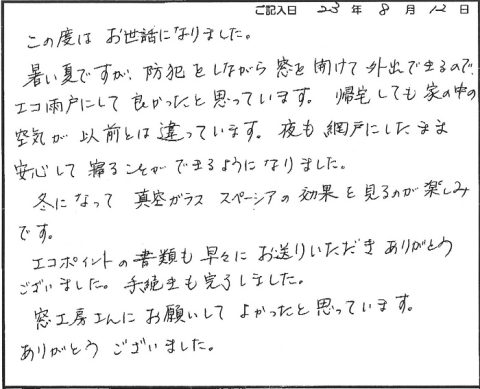 ご記入日 23年 8月 12日
この度は お世話になりました。
暑い夏ですが、防犯をしながら窓を開けて外出できるので、
エコ雨戸にして良かったと思っています。 帰宅しても家の中の
空気が以前とは違っています。夜も網戸にしたまま
安心して寝ることができるようになりました。
冬になって 真空ガラス スペーシアの効果を見るのが楽しみ
です。
エコポイントの書類も早々にお送りいただきありがとう
ございました。手続きも完了しました。
窓工房さんにお願いして よかったと思っています。
ありがとう ございました。